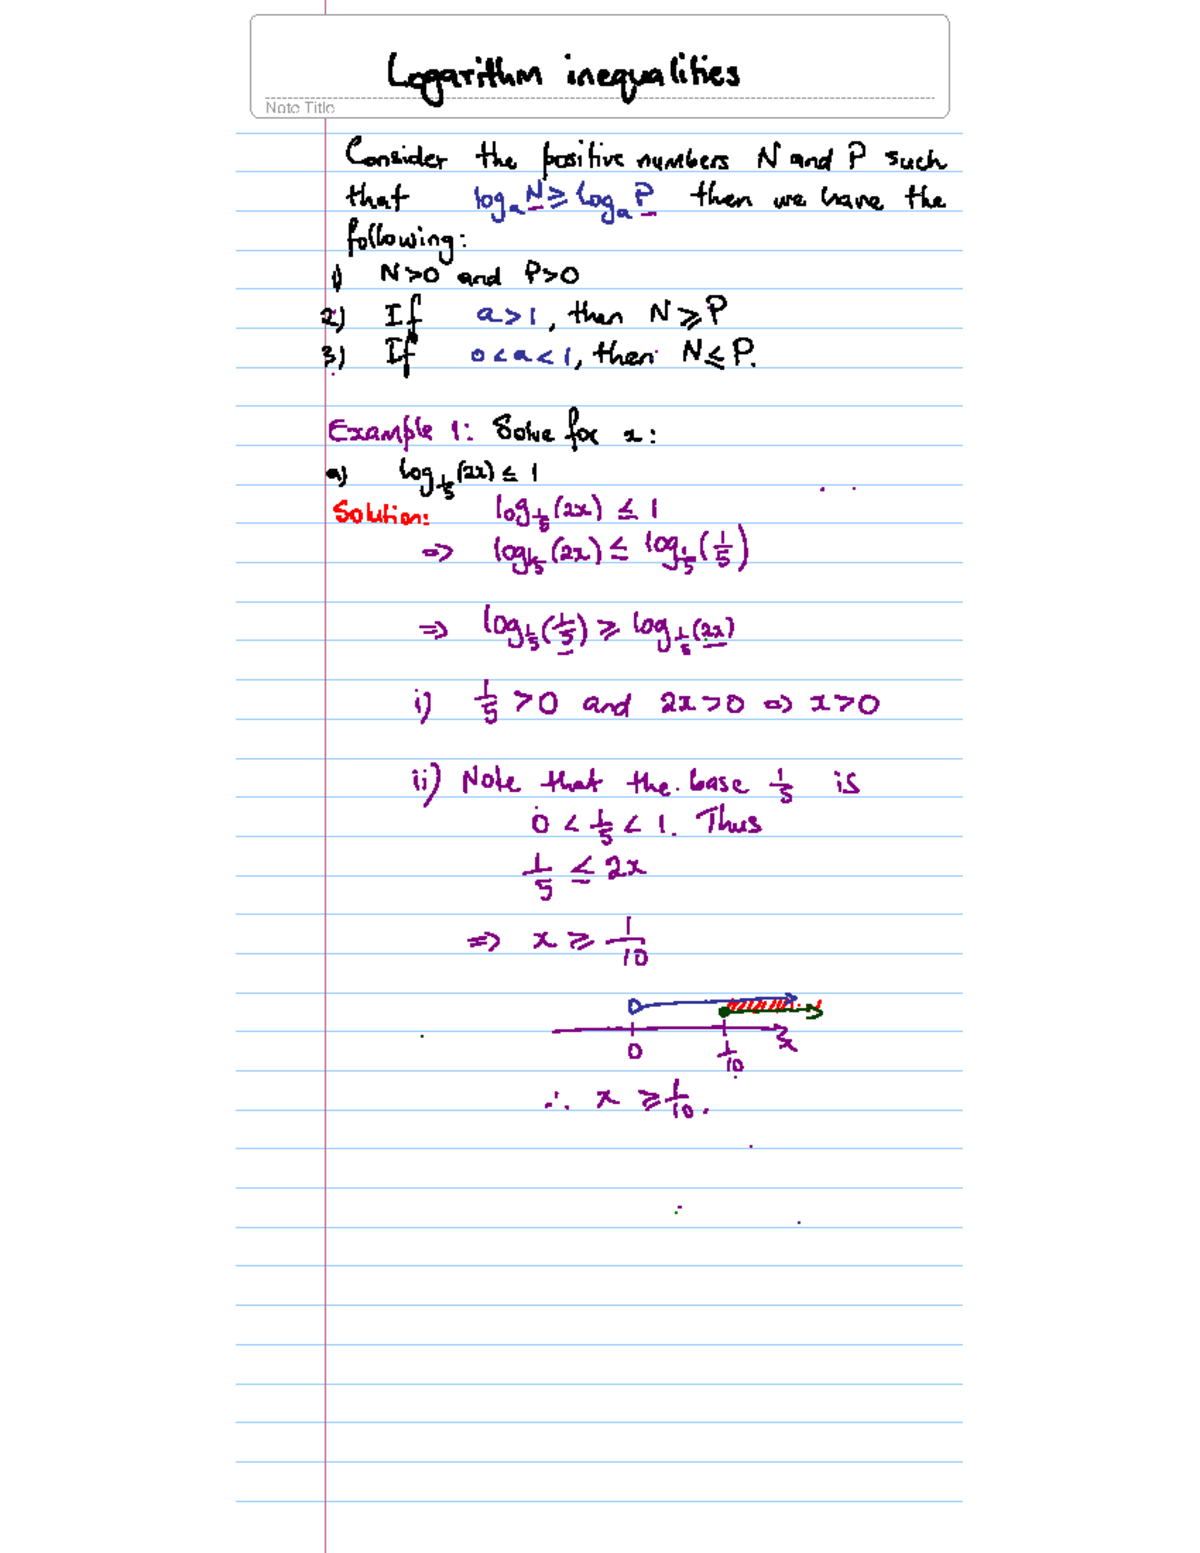 Logarithm inequalities
Note Title
Consider the positive numbers N and P such
that logₐN ≥ logₐP then we have the
following:
1) N>0 and P>0
2) If a>1, then N⩾P
3) If 0<a<1, then N≤P.
Example 1: Solve for x:
a) log_{1/5}(2x) ≤ 1
Solution: log_{1/5}(2x) ≤ 1
⇒ log_{1/5}(2x) ≤ log_{1/5}(1/5)
⇒ log_{1/5}(1/5) ⩾ log_{1/5}(2x)
i) 1/5 >0 and 2x>0 ⇒ x>0
ii) Note that the base 1/5 is
0 < 1/5 < 1. Thus
1/5 ≤ 2x
⇒ x ⩾ 1/10
0 1/10 x
∴ x ⩾ 1/10.